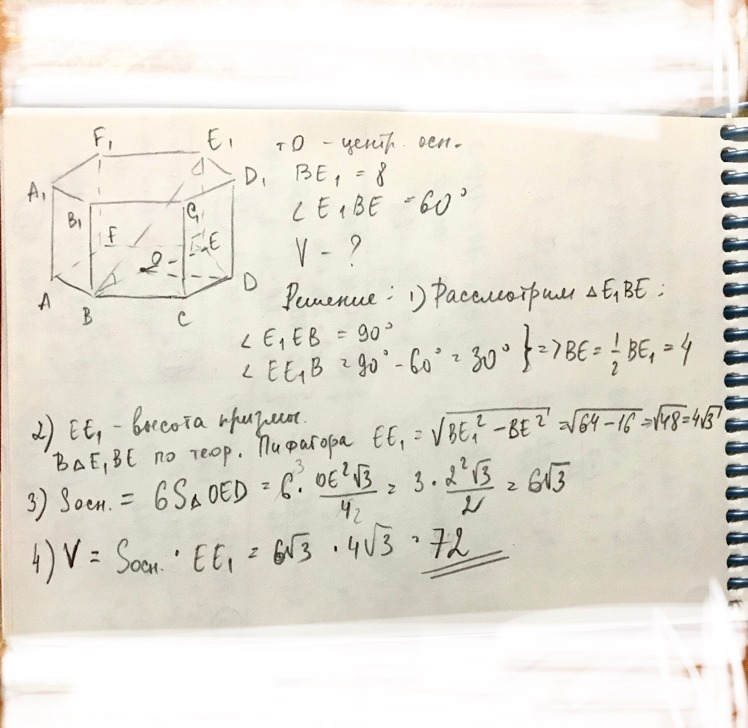 F₁ E₁
A₁ B₁ C₁ D₁
F O E
A B C D
т O - центр осн.
BE₁ = 8
∠ E₁BE = 60°
V - ?
Решение: 1) Рассмотрим △E₁BE:
∠ E₁EB = 90°
∠ EE₁B = 90° - 60° = 30° } => BE = 1/2 BE₁ = 4
2) EE₁ - высота призмы.
В △E₁BE по теор. Пифагора EE₁ = √(BE₁² - BE²) = √(64 - 16) = √48 = 4√3
3) Sосн. = 6S△OED = 6³ · OE²√3/4₂ = 3 · 2²√3/2 = 6√3
4) V = Sосн. · EE₁ = 6√3 · 4√3 = 72